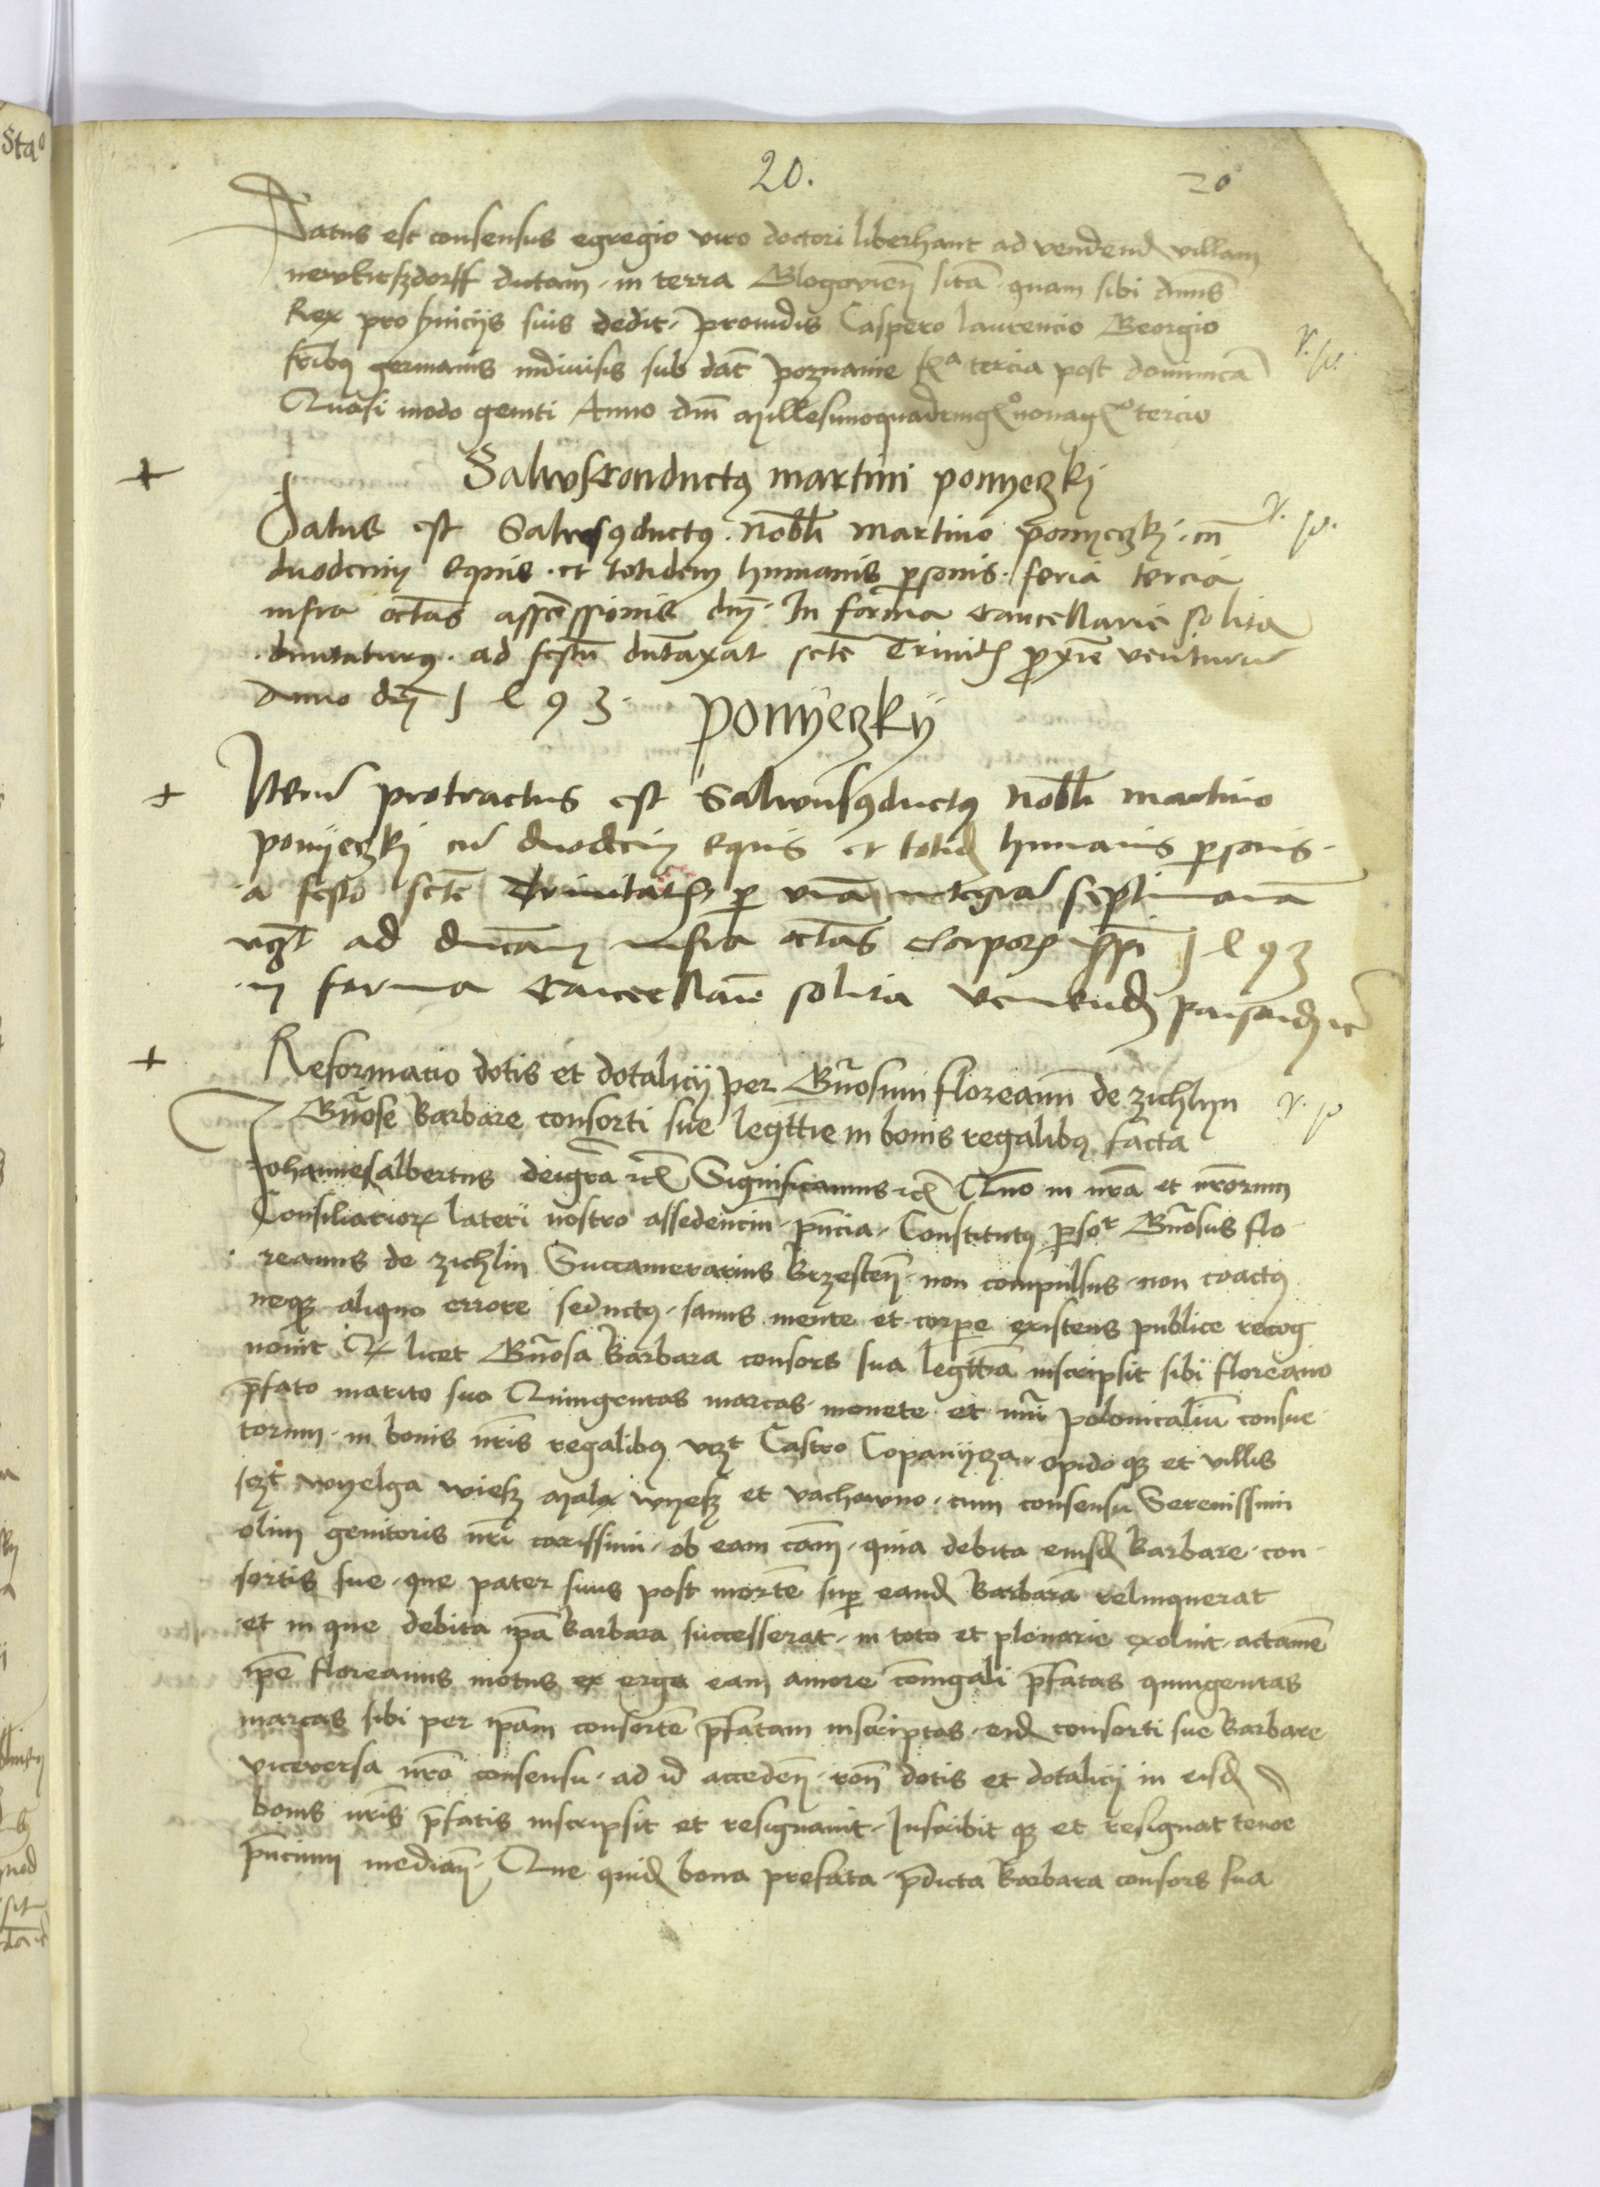 20.
20
Datus est consensus egregio viro doctori liberhant ad vendend villam
dictam in terra Glogovien sitã quam sibi dnus
Rex pro suis dedit providis Caspero laurencio Georgio
fribus germanis indivisis sub dat poznanie fa tercia post dominicã
Quasi modo geniti Anno dni Millesimoquadringo nonago tercio
Salvusconductus martini ponyeczkj
Datus est Salvus9ductus nobli Martino ponyeczkj cũ
duodecim Equis et totidem humanis psonis feria tercia
infra octãs assceñssionis dnj In forma Cancellarie solita
duntaturus ad festũ duntaxat scte Trinitis proxie venturũ
Anno dnj 1 4 9 3
ponyeczkij
Iterũ protractus est Salvus9ductus nobli martino
ponyeczkj cũ duodecim Equis et totid humanis psonis
a festo scte Trinitatis p vnã integrã septimanã
ad dnicam infra octãs Corporis xpi 1 4 9 3
in forma Cancellarie solita
Reformacio dotis et dotalicij per Gñosum floreanũ de zichlyn
Gñose Barbare consorti sue legttie in bonis regalibus facta
Johannesalbertus deigrã etc Significamus etc Quo in nrã et nrõrum
Consiliarior laterij nostro assedencin pñcia Constitutus psor Gñosus flo
reanus de zichlin Succamerarius Brzesteñ non compulsus non coactus
neqz aliquo errore seductus sanus mente et corpe existens publice recog
novit Q licet Gñosa Barbara consors sua legttiã inscripsit sibi floreano
pfato marito suo Quingentas marcas monete et nũi polonicaliũ consue
torum in bonis nris regalibus vzt Castro Copanijcza opido qz et villis
sczt wyelga wiesz Mala wyesz et vachowno cum consensu Serenissimi
olim genitoris nri carissimi ob eam cãm quia debita eiusd Barbare con
sortis sue que pater suus post mortẽ sup eand Barbarã relinquerat
et in que debita ipã Barbara successerat in toto et plenarie exolvit actamẽ
ipẽ floreanus motus ex erga eam amore cõiugali pfatas quingentas
marcas sibi per ipãm consortẽ pfatam inscriptas eid consorti sue Barbare
viceversa nrõ consensu ad id acceden rõn dotis et dotalicij in eisd
bonis nris pfatis inscripsit et resignavit Inscribit qz et resignat tenoe
pñcium median Que quid bona prefata pdicta Barbara consors sua